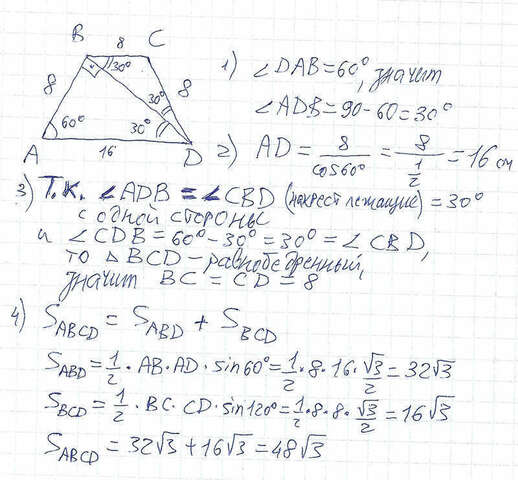 B 8 C
8 30° 8
30°
60° 30°
A 16 D
1) ∠DAB=60°, значит
∠ADB=90-60=30°
2) AD = 8/cos60° = 8/(1/2) = 16 см
3) Т.К. ∠ADB = ∠CBD (накрест лежащие) = 30°
с одной стороны
и ∠CDB = 60°-30° = 30° = ∠CBD,
то △BCD - равнобедренный,
значит BC = CD = 8
4) S_ABCD = S_ABD + S_BCD
S_ABD = 1/2 · AB · AD · sin60° = 1/2 · 8 · 16 · √3/2 = 32√3
S_BCD = 1/2 · BC · CD · sin120° = 1/2 · 8 · 8 · √3/2 = 16√3
S_ABCD = 32√3 + 16√3 = 48√3